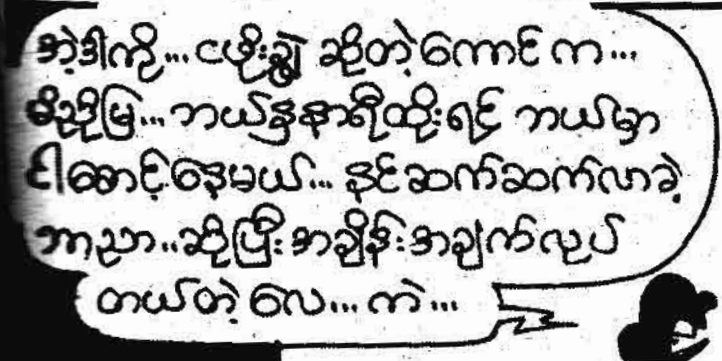 အဲ့ဒါကို... ငဖိုးချွဲ ဆိုတဲ့ကောင်က...
မိညိုမြ... ဘယ်နှနာရီထိုးရင့် ဘယ်မှာ
ငါစောင့်နေမယ်... နင်ဆက်ဆက်လာခဲ့
ဘာညာ..ဆိုပြီးအချိန်းအချက်လုပ်
တယ်တဲ့ လေ... ကဲ...